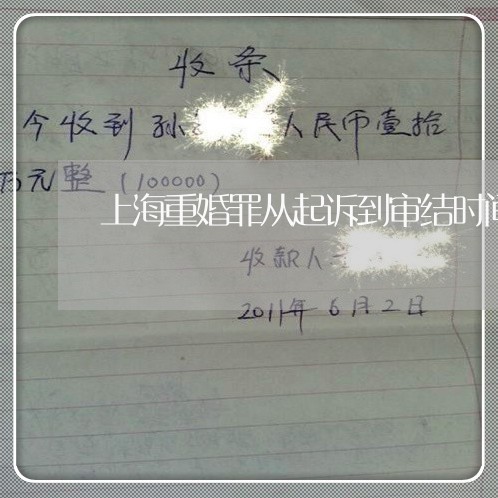 收条
今收到孙 人民币壹拾
万元整（100000）
上海重婚罪从起诉到审结时间
收款人
2011年6月2日